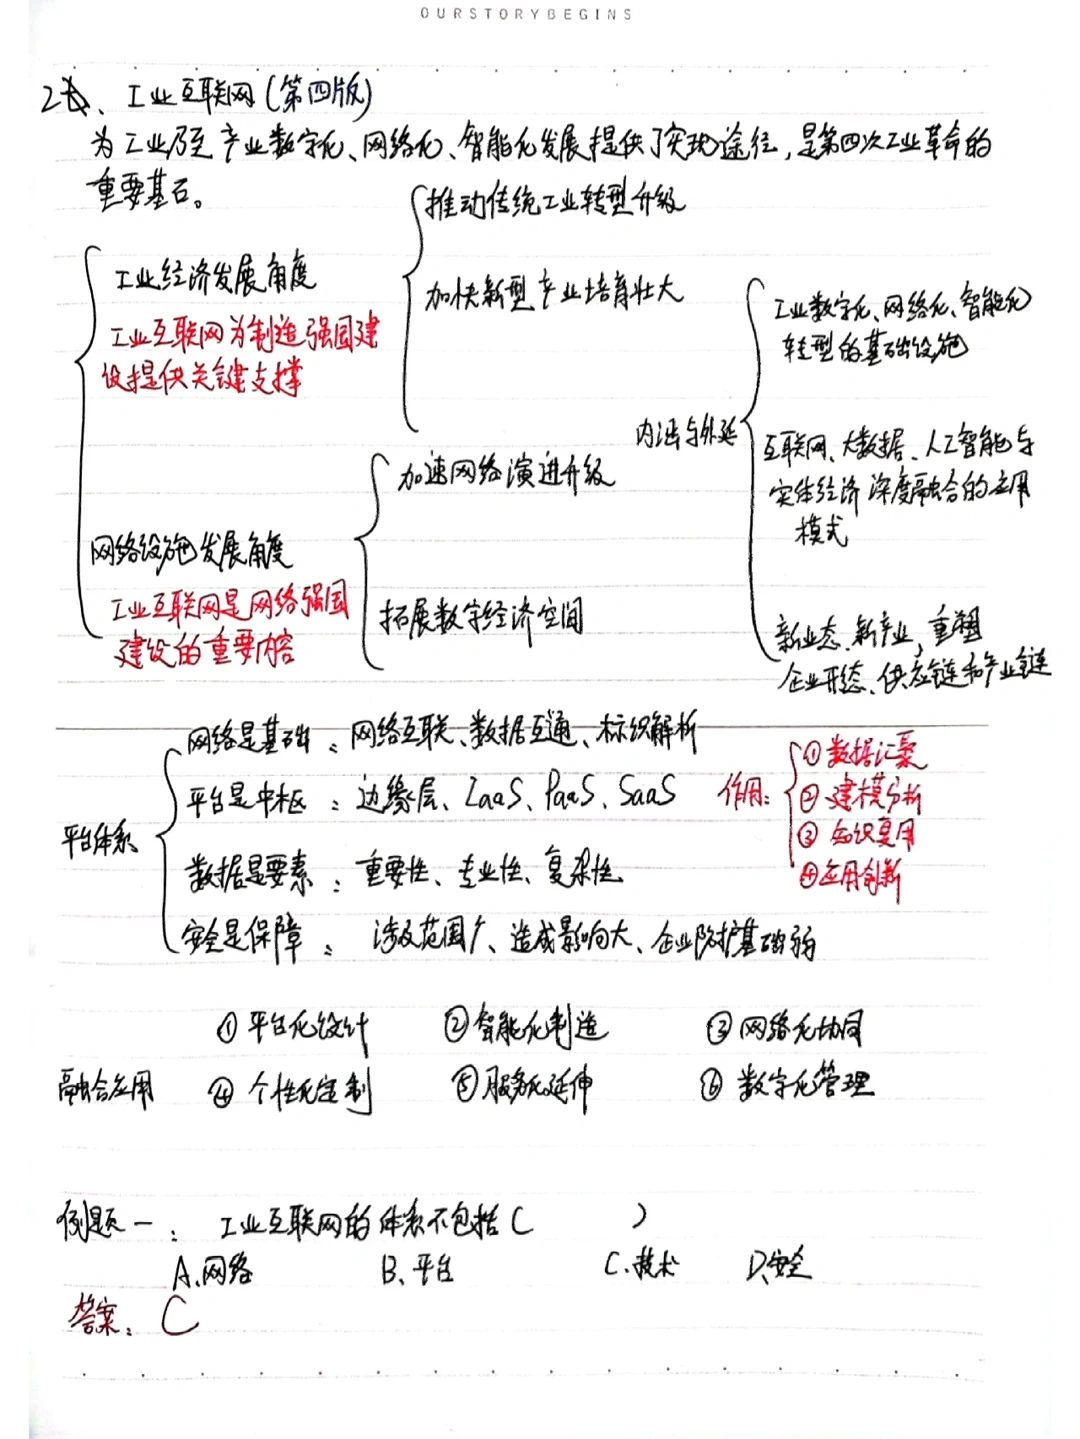 OURSTORYBEGINS
2、工业互联网(第四版)
为工业乃至产业数字化、网络化、智能化发展提供了实现途径,是第四次工业革命的
重要基石。
工业经济发展角度
工业互联网为制造强国建
设提供关键支撑
推动传统工业转型升级
加快新型产业培育壮大
网络设施发展角度
工业互联网是网络强国
建设的重要内容
加速网络演进升级
拓展数字经济空间
内涵与外延
工业数字化、网络化、智能化
转型的基础设施
互联网、大数据、人工智能与
实体经济深度融合的应用
模式
新业态、新产业,重塑
企业形态、供应链和产业链
平台体系
网络是基础:网络互联、数据互通、标识解析
平台是中枢:边缘层、IaaS、PaaS、SaaS
作用:
①数据汇聚
②建模分析
③知识复用
④应用创新
数据是要素:重要性、专业性、复杂性
安全是保障:涉及范围广、造成影响大、企业防护基础弱
融合应用
①平台化设计 ②智能化制造 ③网络化协同
④个性化定制 ⑤服务化延伸 ⑥数字化管理
例题一:工业互联网的体系不包括( )
A.网络 B、平台 C.技术 D.安全
答案:C